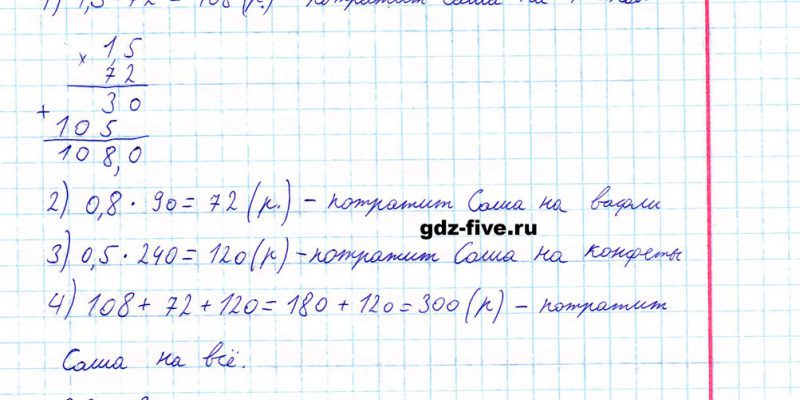 1) 1,5 · 72 = 108 (р.) - потратит Саша на
× 15
72
+ 30
105
108,0
2) 0,8 · 90 = 72 (р.) - потратит Саша на вафли
gdz-five.ru
3) 0,5 · 240 = 120 (р) - потратит Саша на конфеты
4) 108 + 72 + 120 = 180 + 120 = 300 (р) - потратит
Саша на всё.